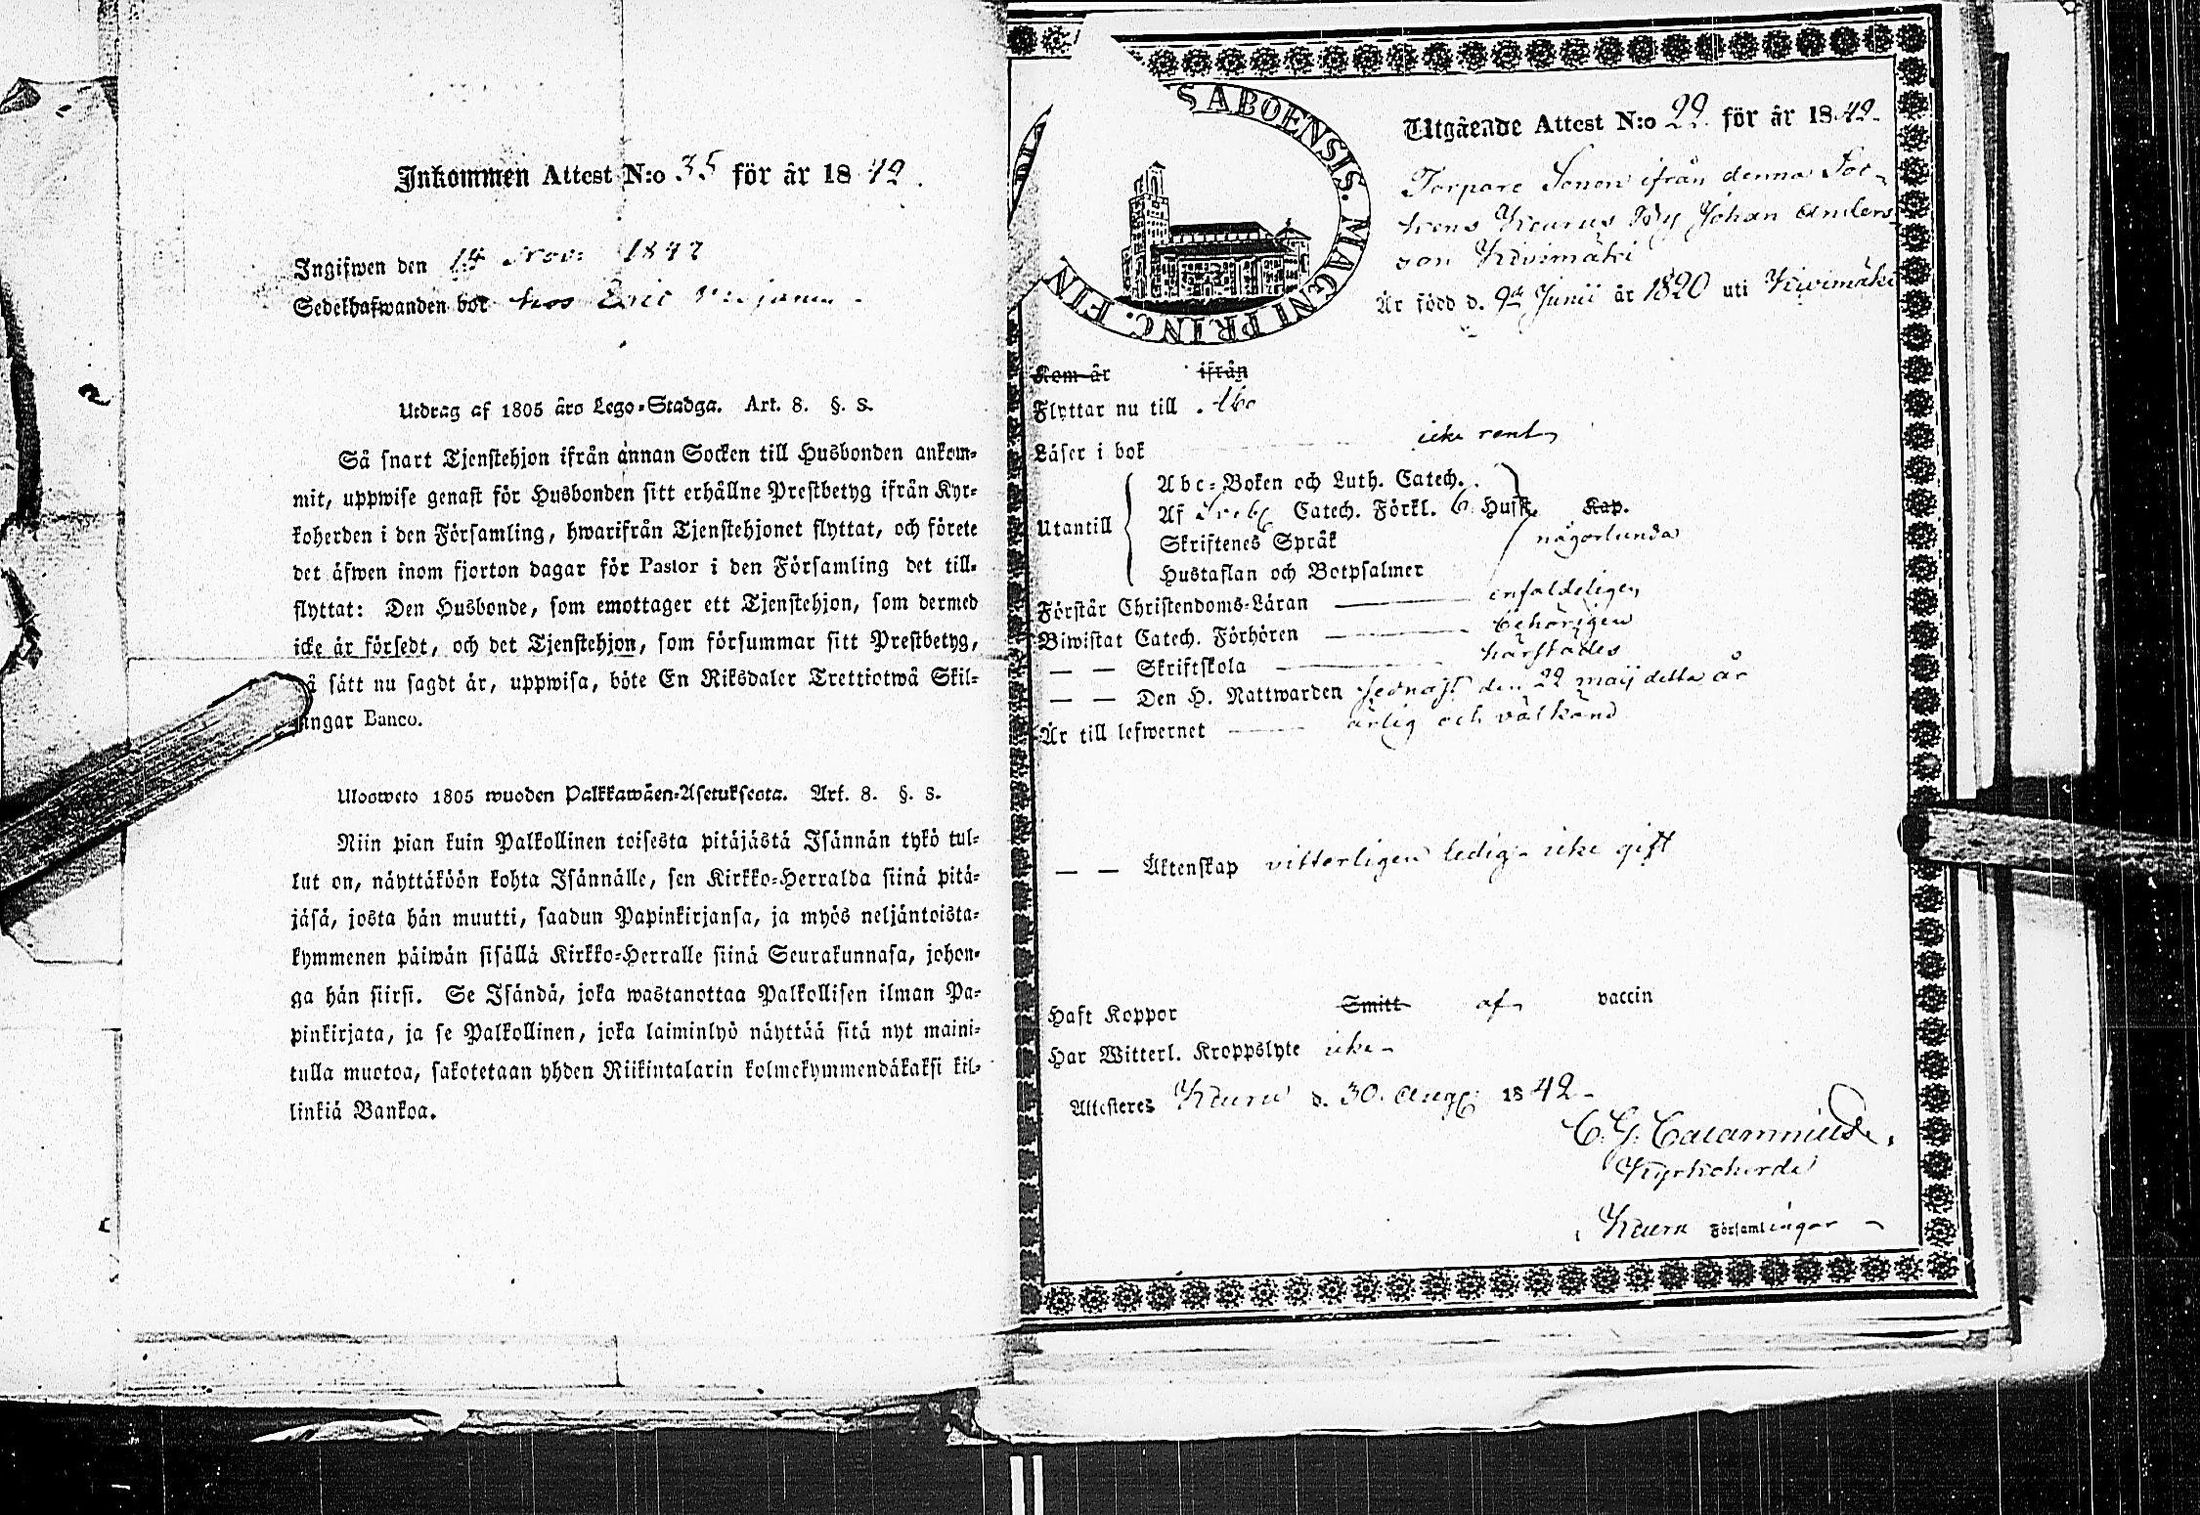 Inkommen Attest N:o 35 för år 1842.
Ingifwen den 14 Nov: 1842
Sedelhafwanden bor hos Eric
Utdrag af 1805 års Lego-Stadga. Art. 8. §. 8.
Så snart Tjenstehjon ifrån annan Socken till Husbonden ankom-
mit, uppwise genast för Husbonden sitt erhållne Prestbetyg ifrån Kyr-
koherden i den Församling, hwarifrån Tjenstehjonet flyttat, och förete
det äfwen inom fjorton dagar för Pastor i den Församling det till-
flyttat: Den Husbonde, som emottager ett Tjenstehjon, som dermed
icke är försedt, och det Tjenstehjon, som försummar sitt Prestbetyg,
sätt nu sagdt är, uppwisa, böte En Riksdaler Trettiotwå Skil-
lingar Banco.
Ulosweto 1805 wuoden Palkkawäen-Asetuksesta. Art. 8. §. 8.
Niin pian kuin Palkollinen toisesta pitäjästä Isännän tykö tul-
lut on, näyttäköön kohta Isännälle, sen Kirkko-Herralda siinä pitä-
jäsä, josta hän muutti, saadun Papinkirjansa, ja myös neljäntoista-
kymmenen päiwän sisällä Kirkko-Herralle siinä Seurakunnasa, johon-
ga hän siirsi. Se Isändä, joka wastanottaa Palkollisen ilman Pa-
pinkirjata, ja se Palkollinen, joka laiminlyö näyttää sitä nyt maini-
tulla muotoa, sakotetaan yhden Riikintalarin kolmekymmendäkaksi kil-
linkiä Bankoa.
S ABOENSIS. MAGNI PRINC. FIN
Utgående Attest N:o 22 för år 1842.
Torpare Sonen ifrån denna Soc-
kens Kurus By Johan Anders-
son Kivimäki
Är född d. 9de Junii år 1820 uti Kivimäki
Kom år ifrån
Flyttar nu till Åbo
Läser i bok icke rent
Abc-Boken och Luth. Catech.
Utantill Af Sveb. Catech. Förkl. 6. Husst. Kap.
Skriftenes Språk någorlunda
Hustaflan och Botpsalmer
Förstår Christendoms-Läran enfaldeligen
Biwistat Catech. Förhören behörigen
— — Skriftskola härstädes
— — Den H. Nattwarden sednast den 22 maij detta år
Är till lefwernet ärlig och välkänd
— — Äktenskap vitterligen ledig icke gift
Haft Koppor Smitt af vaccin
Har Witterl. Kroppslyte icke
Attesteres Kuru d. 30. Aug. 1842
C. G. Calamnius.
Kyrkoherde
Kuru Församlingar